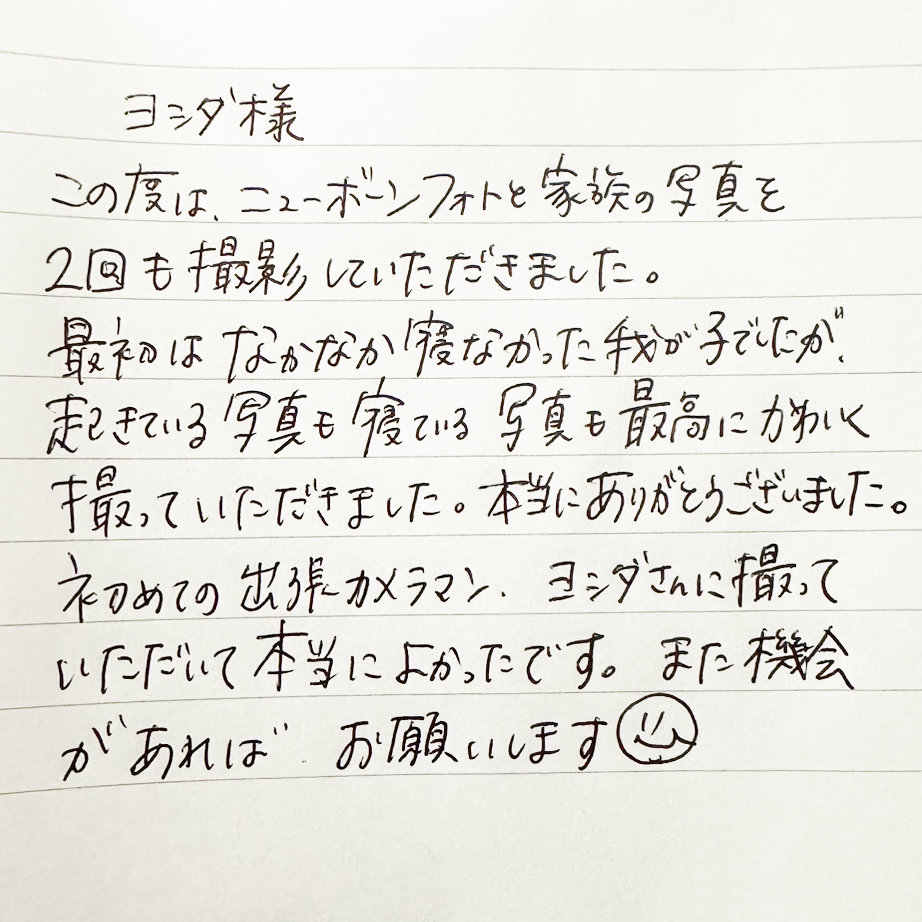 ヨシダ様
この度は、ニューボーンフォトと家族の写真を
2回も撮影していただきました。
最初はなかなか寝なかった我が子でしたが、
起きている写真も寝ている写真も最高にかわいく
撮っていただきました。本当にありがとうございました。
初めての出張カメラマン、ヨシダさんに撮って
いただいて本当によかったです。また機会
があればお願いします